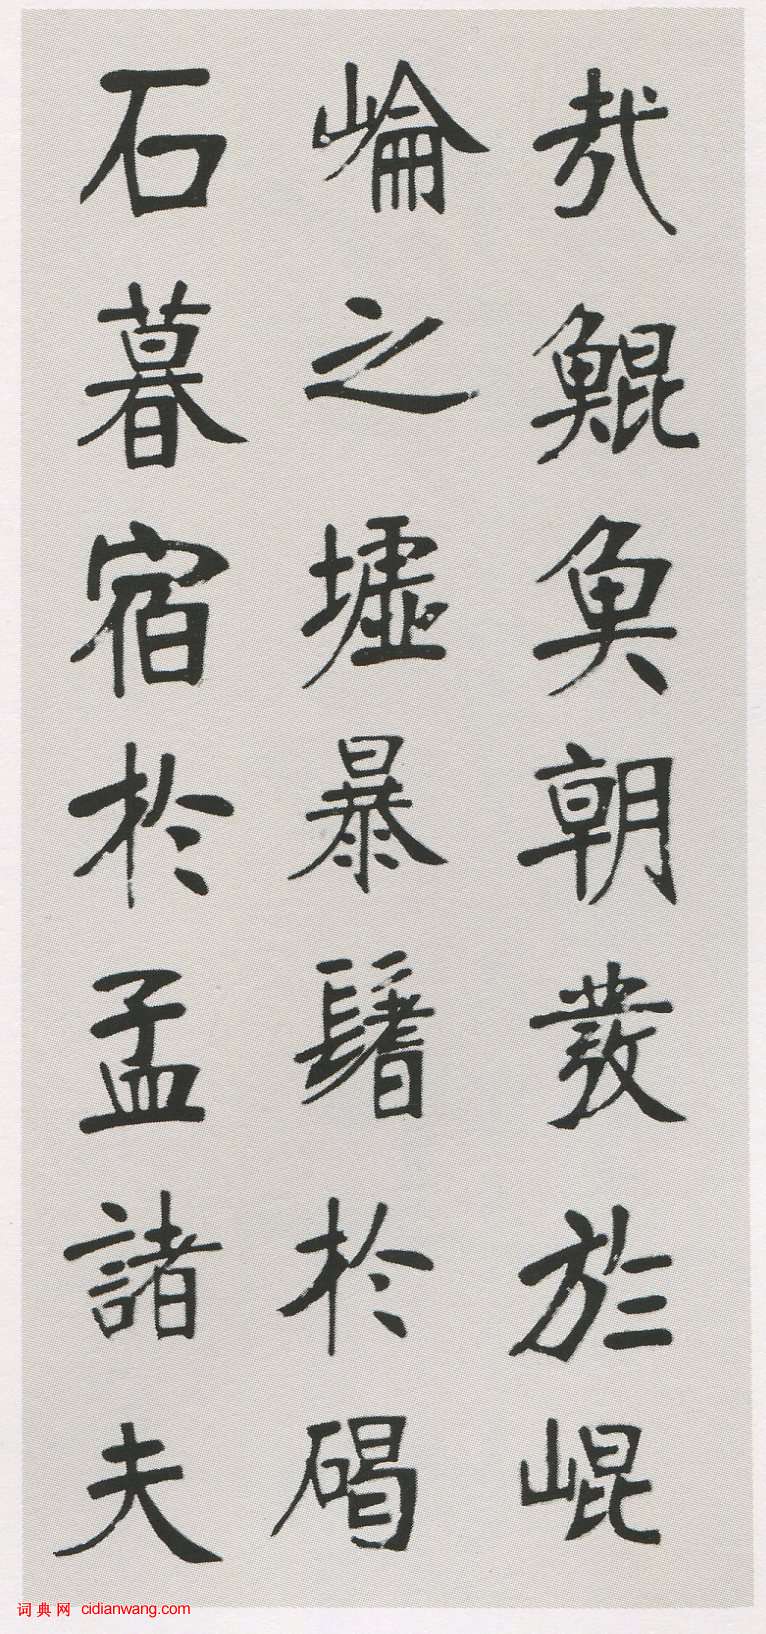 哉鯤魚朝發於崐
崘之墟暴鬐於碣
石暮宿於孟諸夫
词典网 cidianwang.com